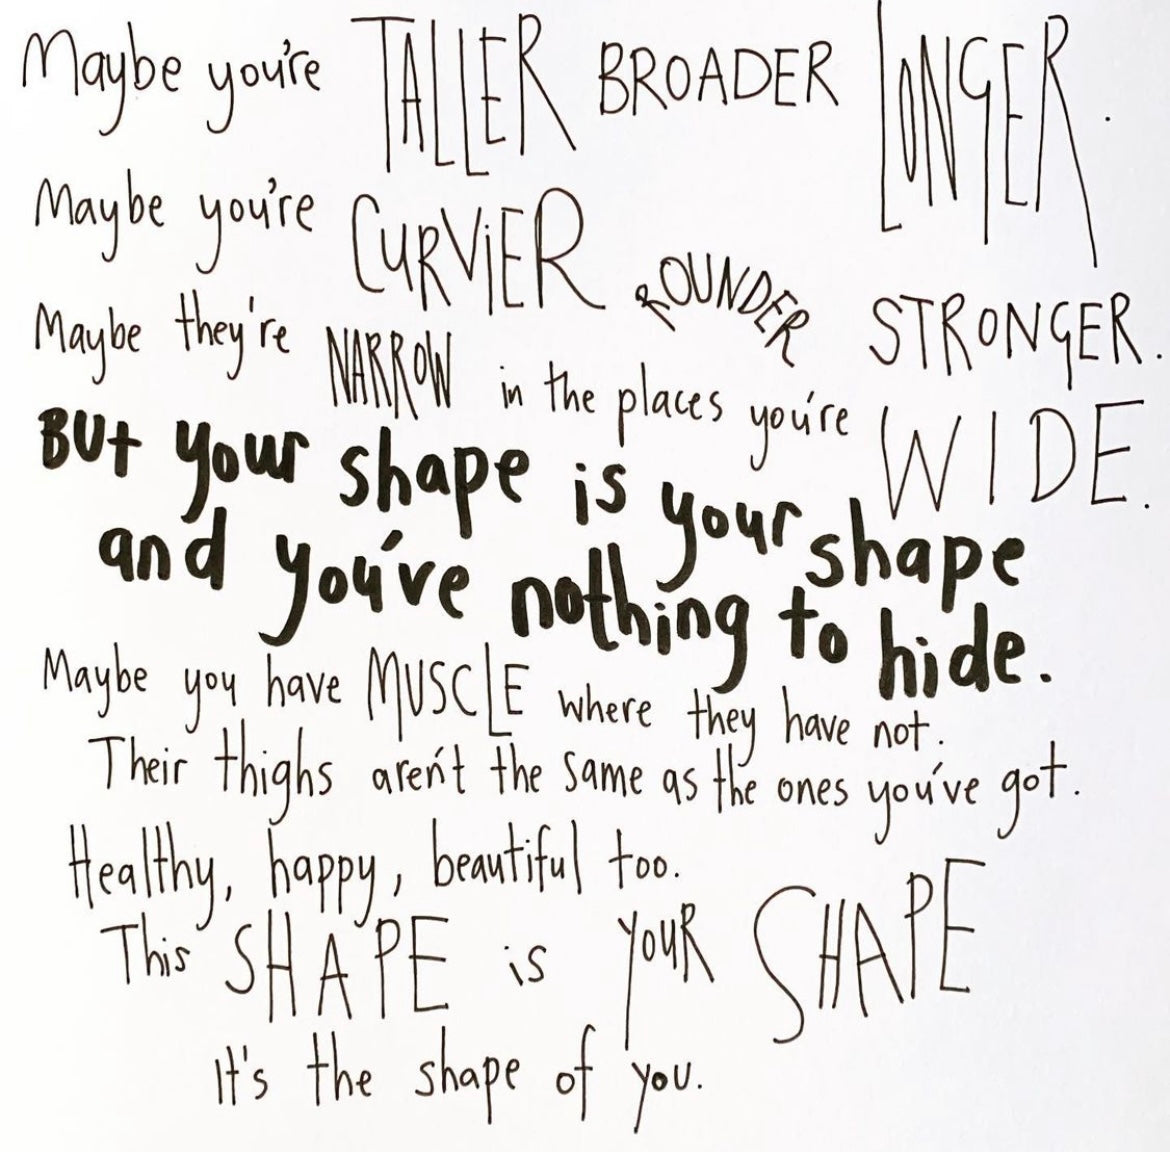 Maybe you're TALLER BROADER LONGER.
Maybe you're CURViER ROUNDER STRONGER.
Maybe they're NARROW in the places you're WIDE.
BUt your shape is your shape
and you've nothing to hide.
Maybe you have MUSCLE where they have not.
Their thighs aren't the same as the ones you've got.
Healthy, happy, beautiful too.
This SHAPE is YouR SHAPE
It's the shape of you.